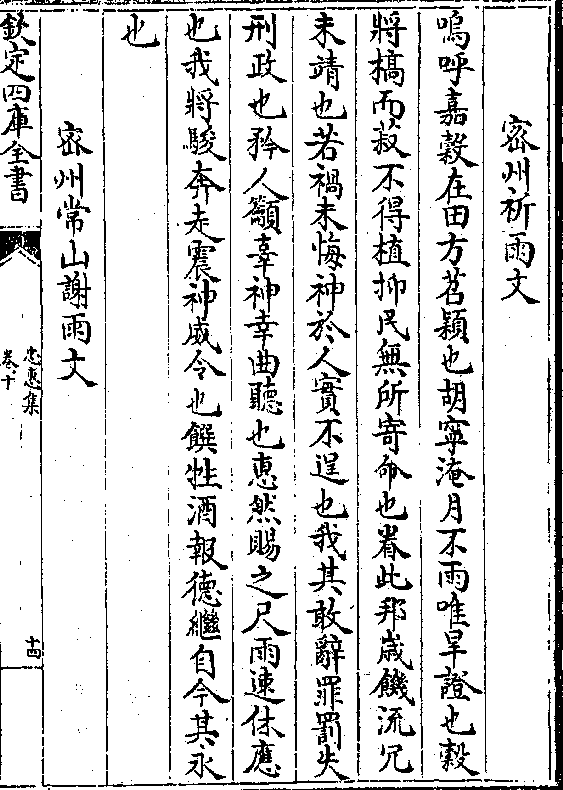 密州祈雨文
嗚呼嘉穀在田方苕穎也胡寧淹月不雨唯旱證也穀
將槁而菽不得植抑民無所寄命也眷此邦歲饑流冗
未靖也若禍未悔神於人實不逞也我其敢辭罪罰失
刑政也矜人籲辜神幸曲聽也惠然賜之尺雨速休應
也我將駿奔走震神威令也饌牲酒報德繼自今其永
也
密州常山謝雨文
欽定四庫全書
忠惠集
卷十
十四